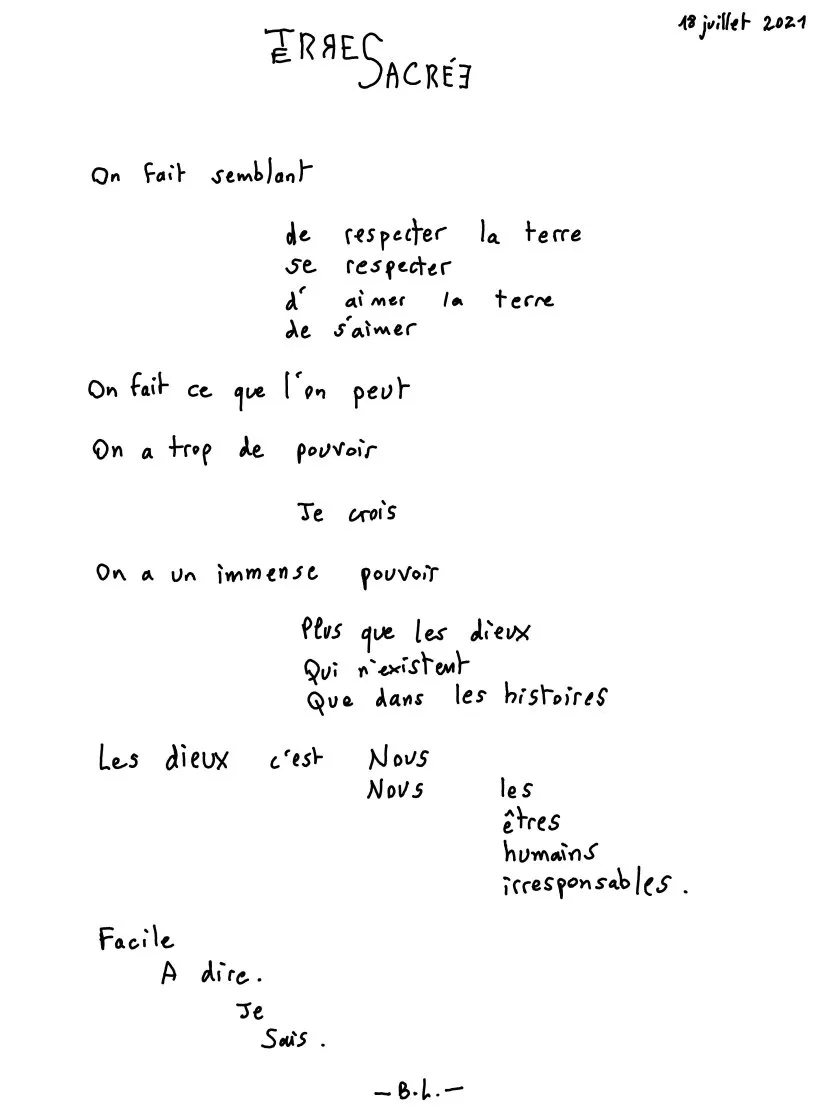 18 juillet 2021
TERRES
SACRÉE
On fait semblant
de respecter la terre
se respecter
d'aimer la terre
de s'aimer
On fait ce que l'on peut
On a trop de pouvoir
Je crois
On a un immense pouvoir
Plus que les dieux
Qui n'existent
Que dans les histoires
Les dieux c'est Nous
Nous les
êtres
humains
irresponsables.
Facile
A dire.
Je
Sais.
— B.L. —